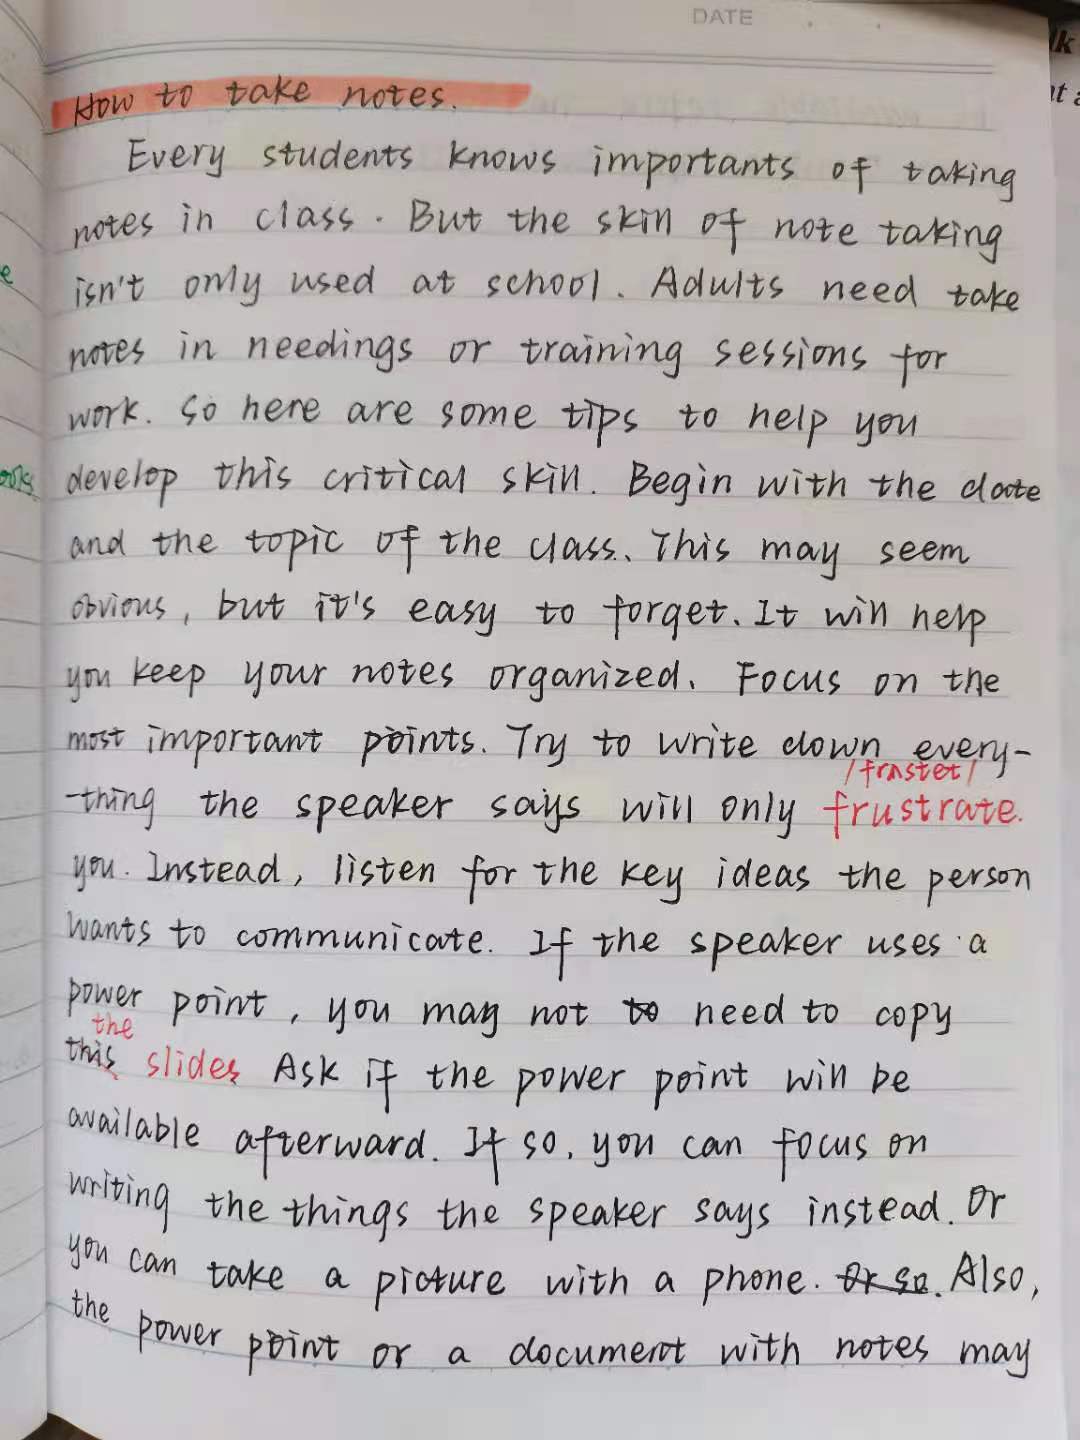 DATE
How to take notes.
Every students knows importants of taking
notes in class. But the skill of note taking
isn't only used at school. Adults need take
notes in needings or training sessions for
work. So here are some tips to help you
develop this critical skill. Begin with the date
and the topic of the class. This may seem
obvious, but it's easy to forget. It will help
you keep your notes organized. Focus on the
most important points. Try to write down every-
/frʌstet/
-thing the speaker says will only frustrate.
you. Instead, listen for the key ideas the person
wants to communicate. If the speaker uses a
power point, you may not to need to copy
the
this slides Ask if the power point will be
available afterward. If so, you can focus on
writing the things the speaker says instead. Or
you can take a picture with a phone. Or so. Also,
the power point or a document with notes may